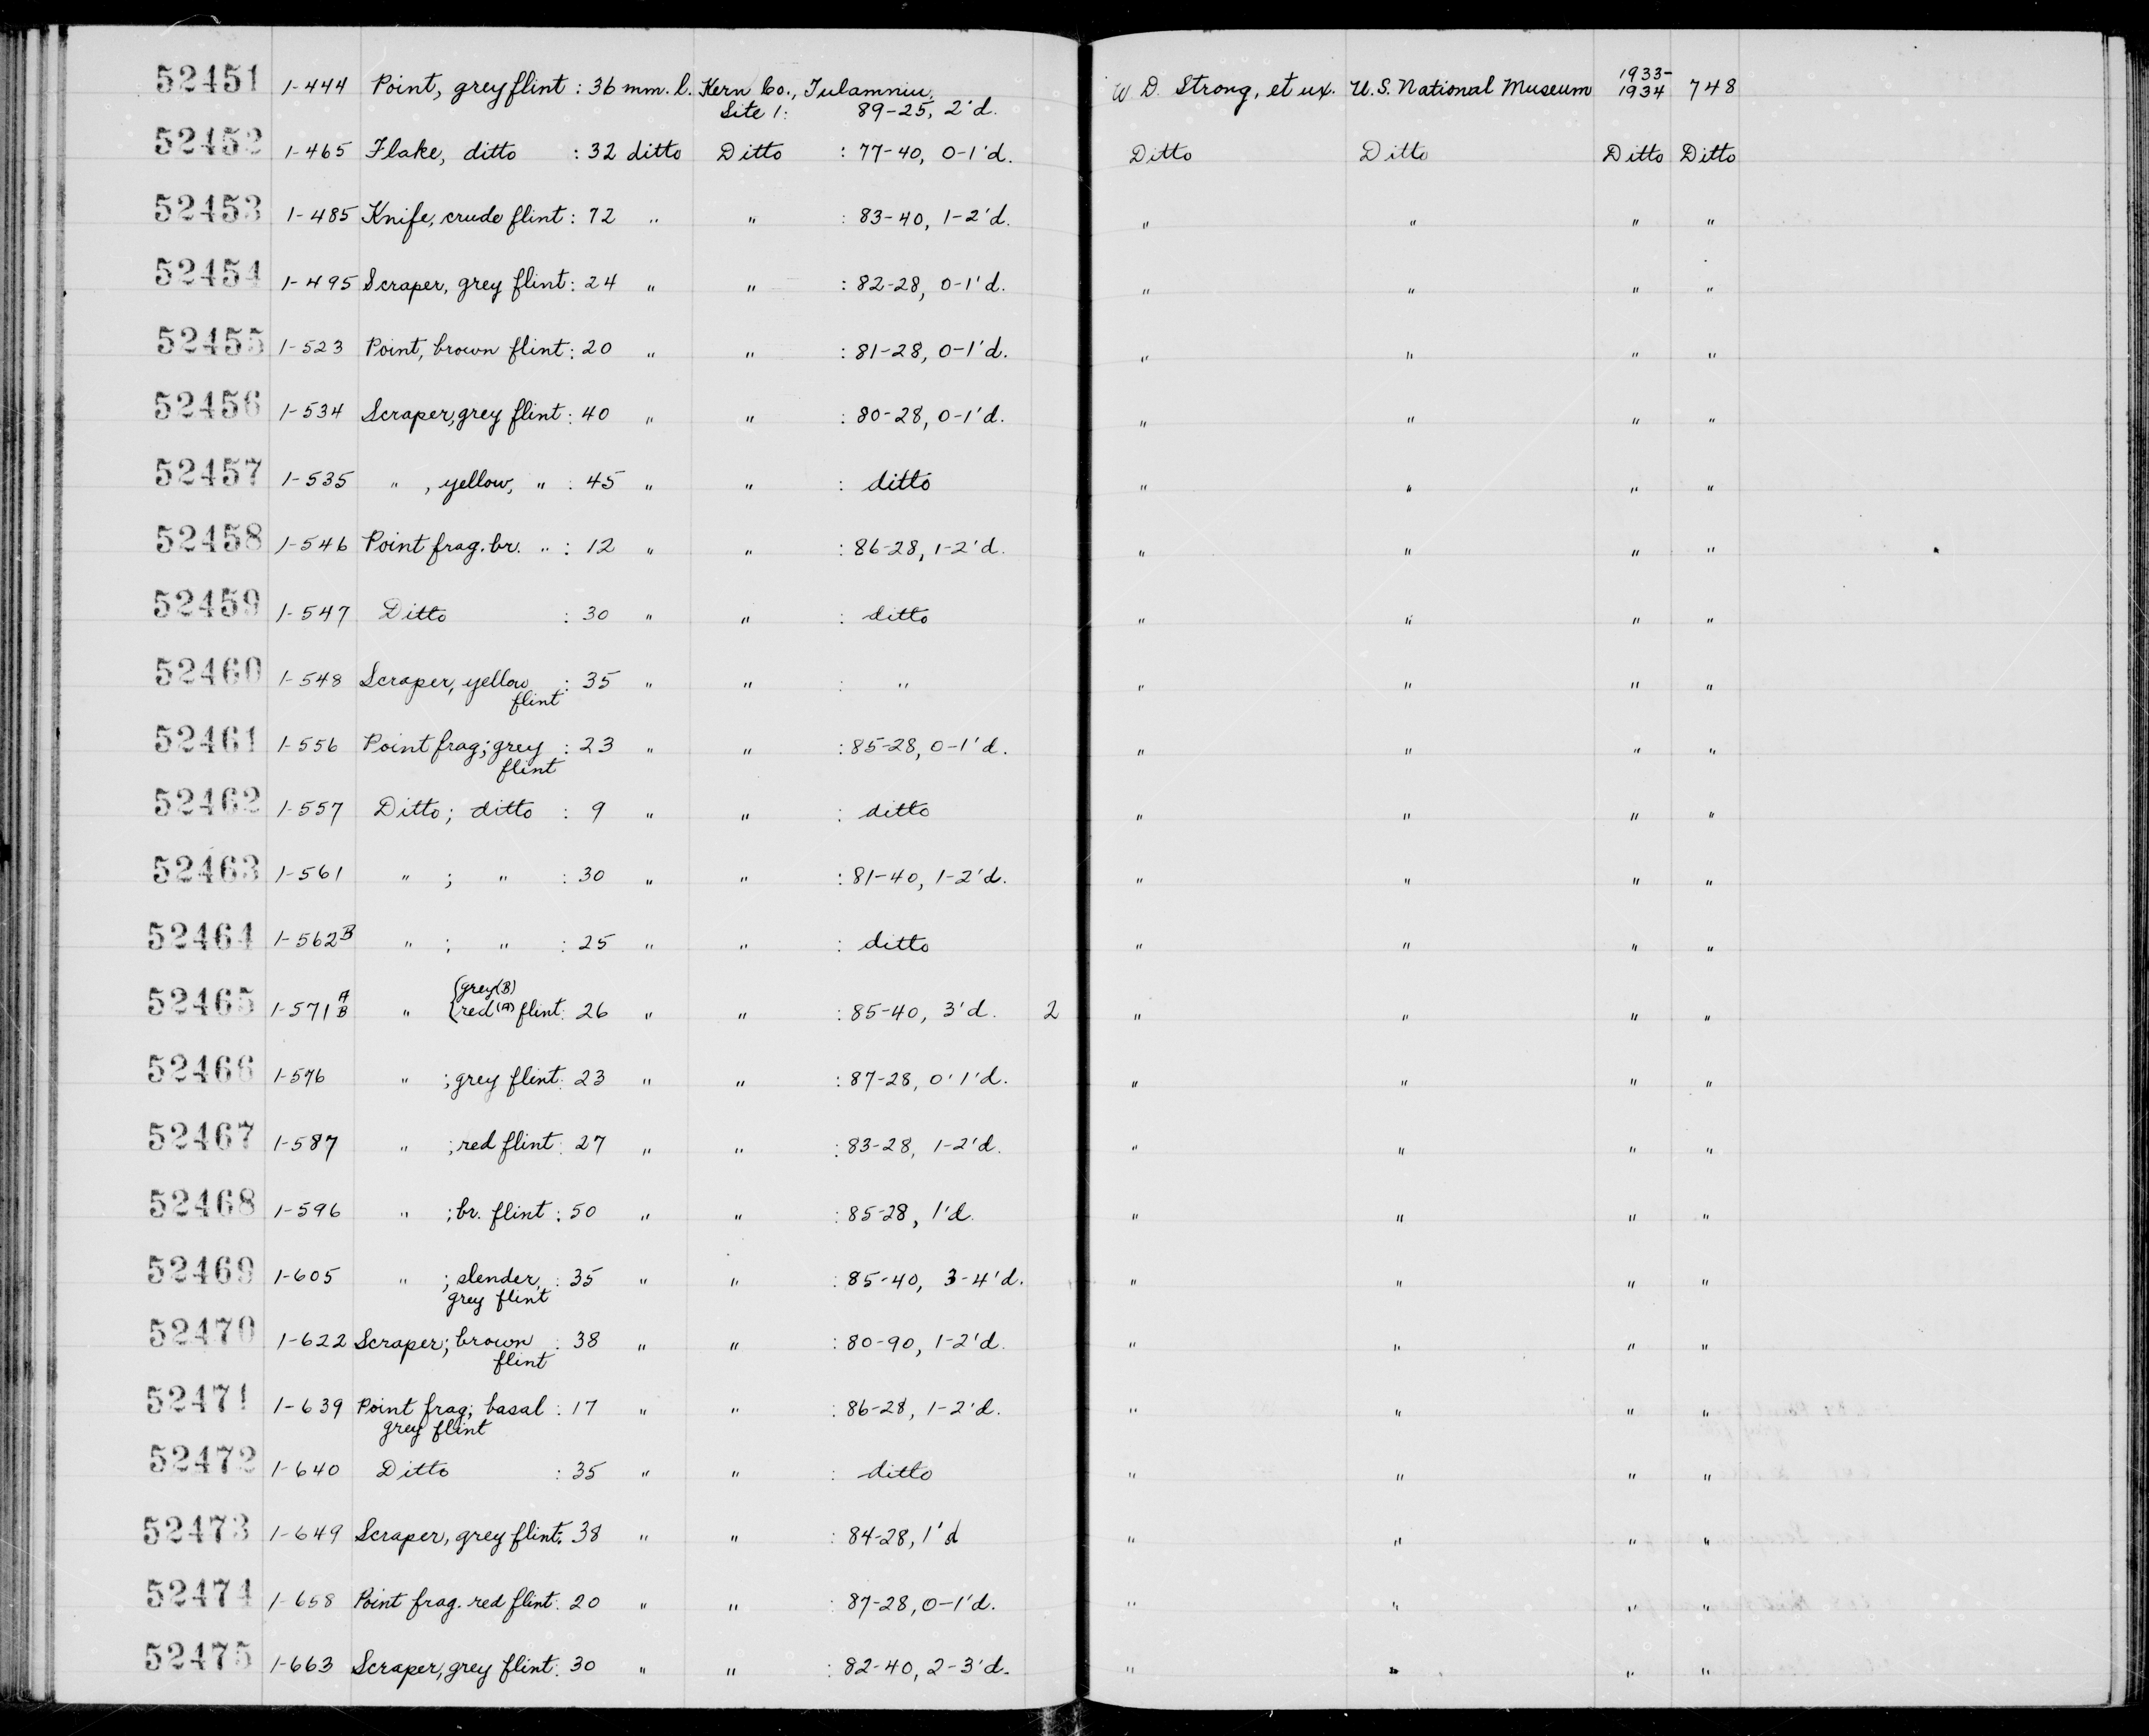 52451 1-444 Point, grey flint : 36 mm. l. Kern Co., Tulamniu, W. D. Strong, et ux. U.S. National Museum 1933-1934 748
Site 1: 89-25, 2'd.
52452 1-465 Flake, ditto : 32 ditto Ditto : 77-40, 0-1'd. Ditto Ditto Ditto Ditto
52453 1-485 Knife, crude flint : 72 " " : 83-40, 1-2'd. " " " "
52454 1-495 Scraper, grey flint : 24 " " : 82-28, 0-1'd. " " " "
52455 1-523 Point, brown flint : 20 " " : 81-28, 0-1'd. " " " "
52456 1-534 Scraper, grey flint : 40 " " : 80-28, 0-1'd. " " " "
52457 1-535 " , yellow, " : 45 " " : ditto " " " "
52458 1-546 Point frag. br. " : 12 " " : 86-28, 1-2'd. " " " "
52459 1-547 Ditto : 30 " " : ditto " " " "
52460 1-548 Scraper, yellow : 35 " " : " " " " "
flint
52461 1-556 Point frag; grey : 23 " " : 85-28, 0-1'd. " " " "
flint
52462 1-557 Ditto; ditto : 9 " " : ditto " " " "
52463 1-561 " ; " : 30 " " : 81-40, 1-2'd. " " " "
52464 1-562B " ; " : 25 " " : ditto " " " "
{grey (B)
52465 1-571 A B " {red (A) flint : 26 " " : 85-40, 3'd. 2 " " " "
52466 1-576 " ; grey flint : 23 " " : 87-28, 0'1'd. " " " "
52467 1-587 " ; red flint : 27 " " : 83-28, 1-2'd. " " " "
52468 1-596 " ; br. flint : 50 " " : 85-28, 1'd. " " " "
52469 1-605 " ; slender, : 35 " " : 85-40, 3-4'd. " " " "
grey flint
52470 1-622 Scraper; brown : 38 " " : 80-90, 1-2'd. " " " "
flint
52471 1-639 Point frag; basal : 17 " " : 86-28, 1-2'd. " " " "
grey flint
52472 1-640 Ditto : 35 " " : ditto " " " "
52473 1-649 Scraper, grey flint : 38 " " : 84-28, 1'd " " " "
52474 1-658 Point frag. red flint : 20 " " : 87-28, 0-1'd. " " " "
52475 1-663 Scraper, grey flint : 30 " " : 82-40, 2-3'd. " " " "